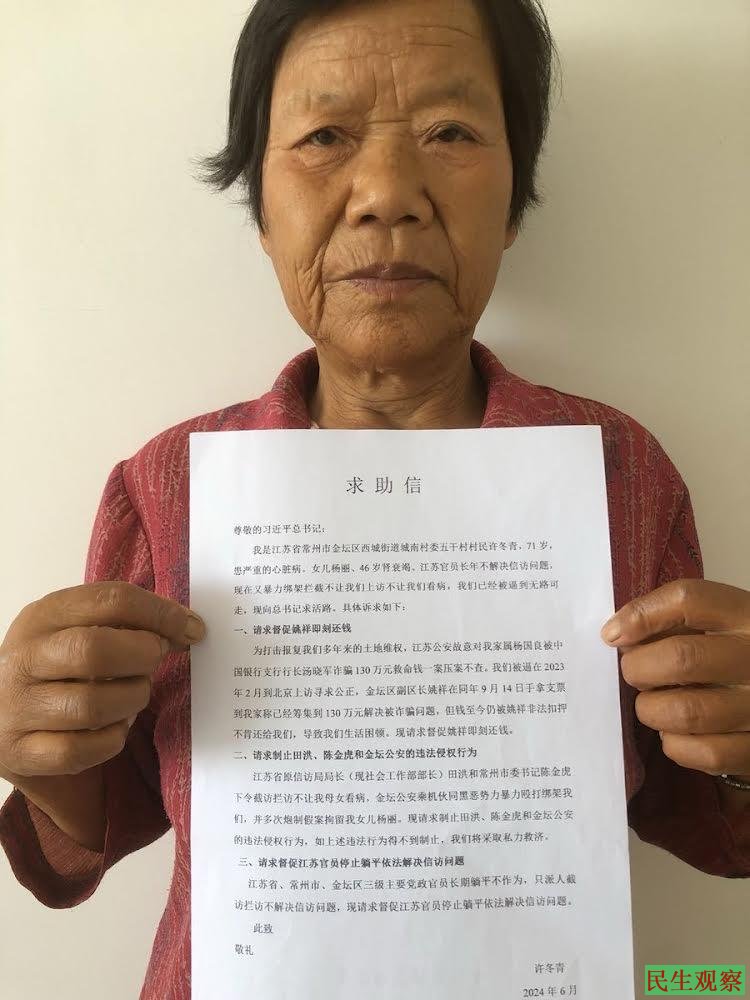 求助信
尊敬的习近平总书记:
我是江苏省常州市金坛区西城街道城南村委五干村村民许冬青，71岁，
患严重的心脏病。女儿杨丽、46岁肾衰竭。江苏官员长年不解决信访问题，
现在又暴力绑架拦截不让我们上访不让我们看病，我们已经被逼到无路可
走，现向总书记求活路。具体诉求如下:
一、请求督促姚祥即刻还钱
为打击报复我们多年来的土地维权，江苏公安故意对我家属杨国良被中
国银行支行行长汤晓军诈骗130万元救命钱一案压案不查。我们被逼在2023
年2月到北京上访寻求公正，金坛区副区长姚祥在同年9月14日手拿支票
到我家称已经筹集到130万元解决被诈骗问题，但钱至今仍被姚祥非法扣押
不肯还给我们，导致我们生活困顿。现请求督促姚祥即刻还钱。
二、请求制止田洪、陈金虎和金坛公安的违法侵权行为
江苏省原信访局局长（现社会工作部部长）田洪和常州市委书记陈金虎
下令截访拦访不让我母女看病，金坛公安乘机伙同黑恶势力暴力殴打绑架我
们，并多次炮制假案拘留我女儿杨丽。现请求制止田洪、陈金虎和金坛公安
的违法侵权行为，如上述违法行为得不到制止，我们将采取私力救济。
三、请求督促江苏官员停止躺平依法解决信访问题
江苏省、常州市、金坛区三级主要党政官员长期躺平不作为，只派人截
访拦访不解决信访问题，现请求督促江苏官员停止躺平依法解决信访问题。
此致
敬礼
许冬青
2024年6月
民生观察